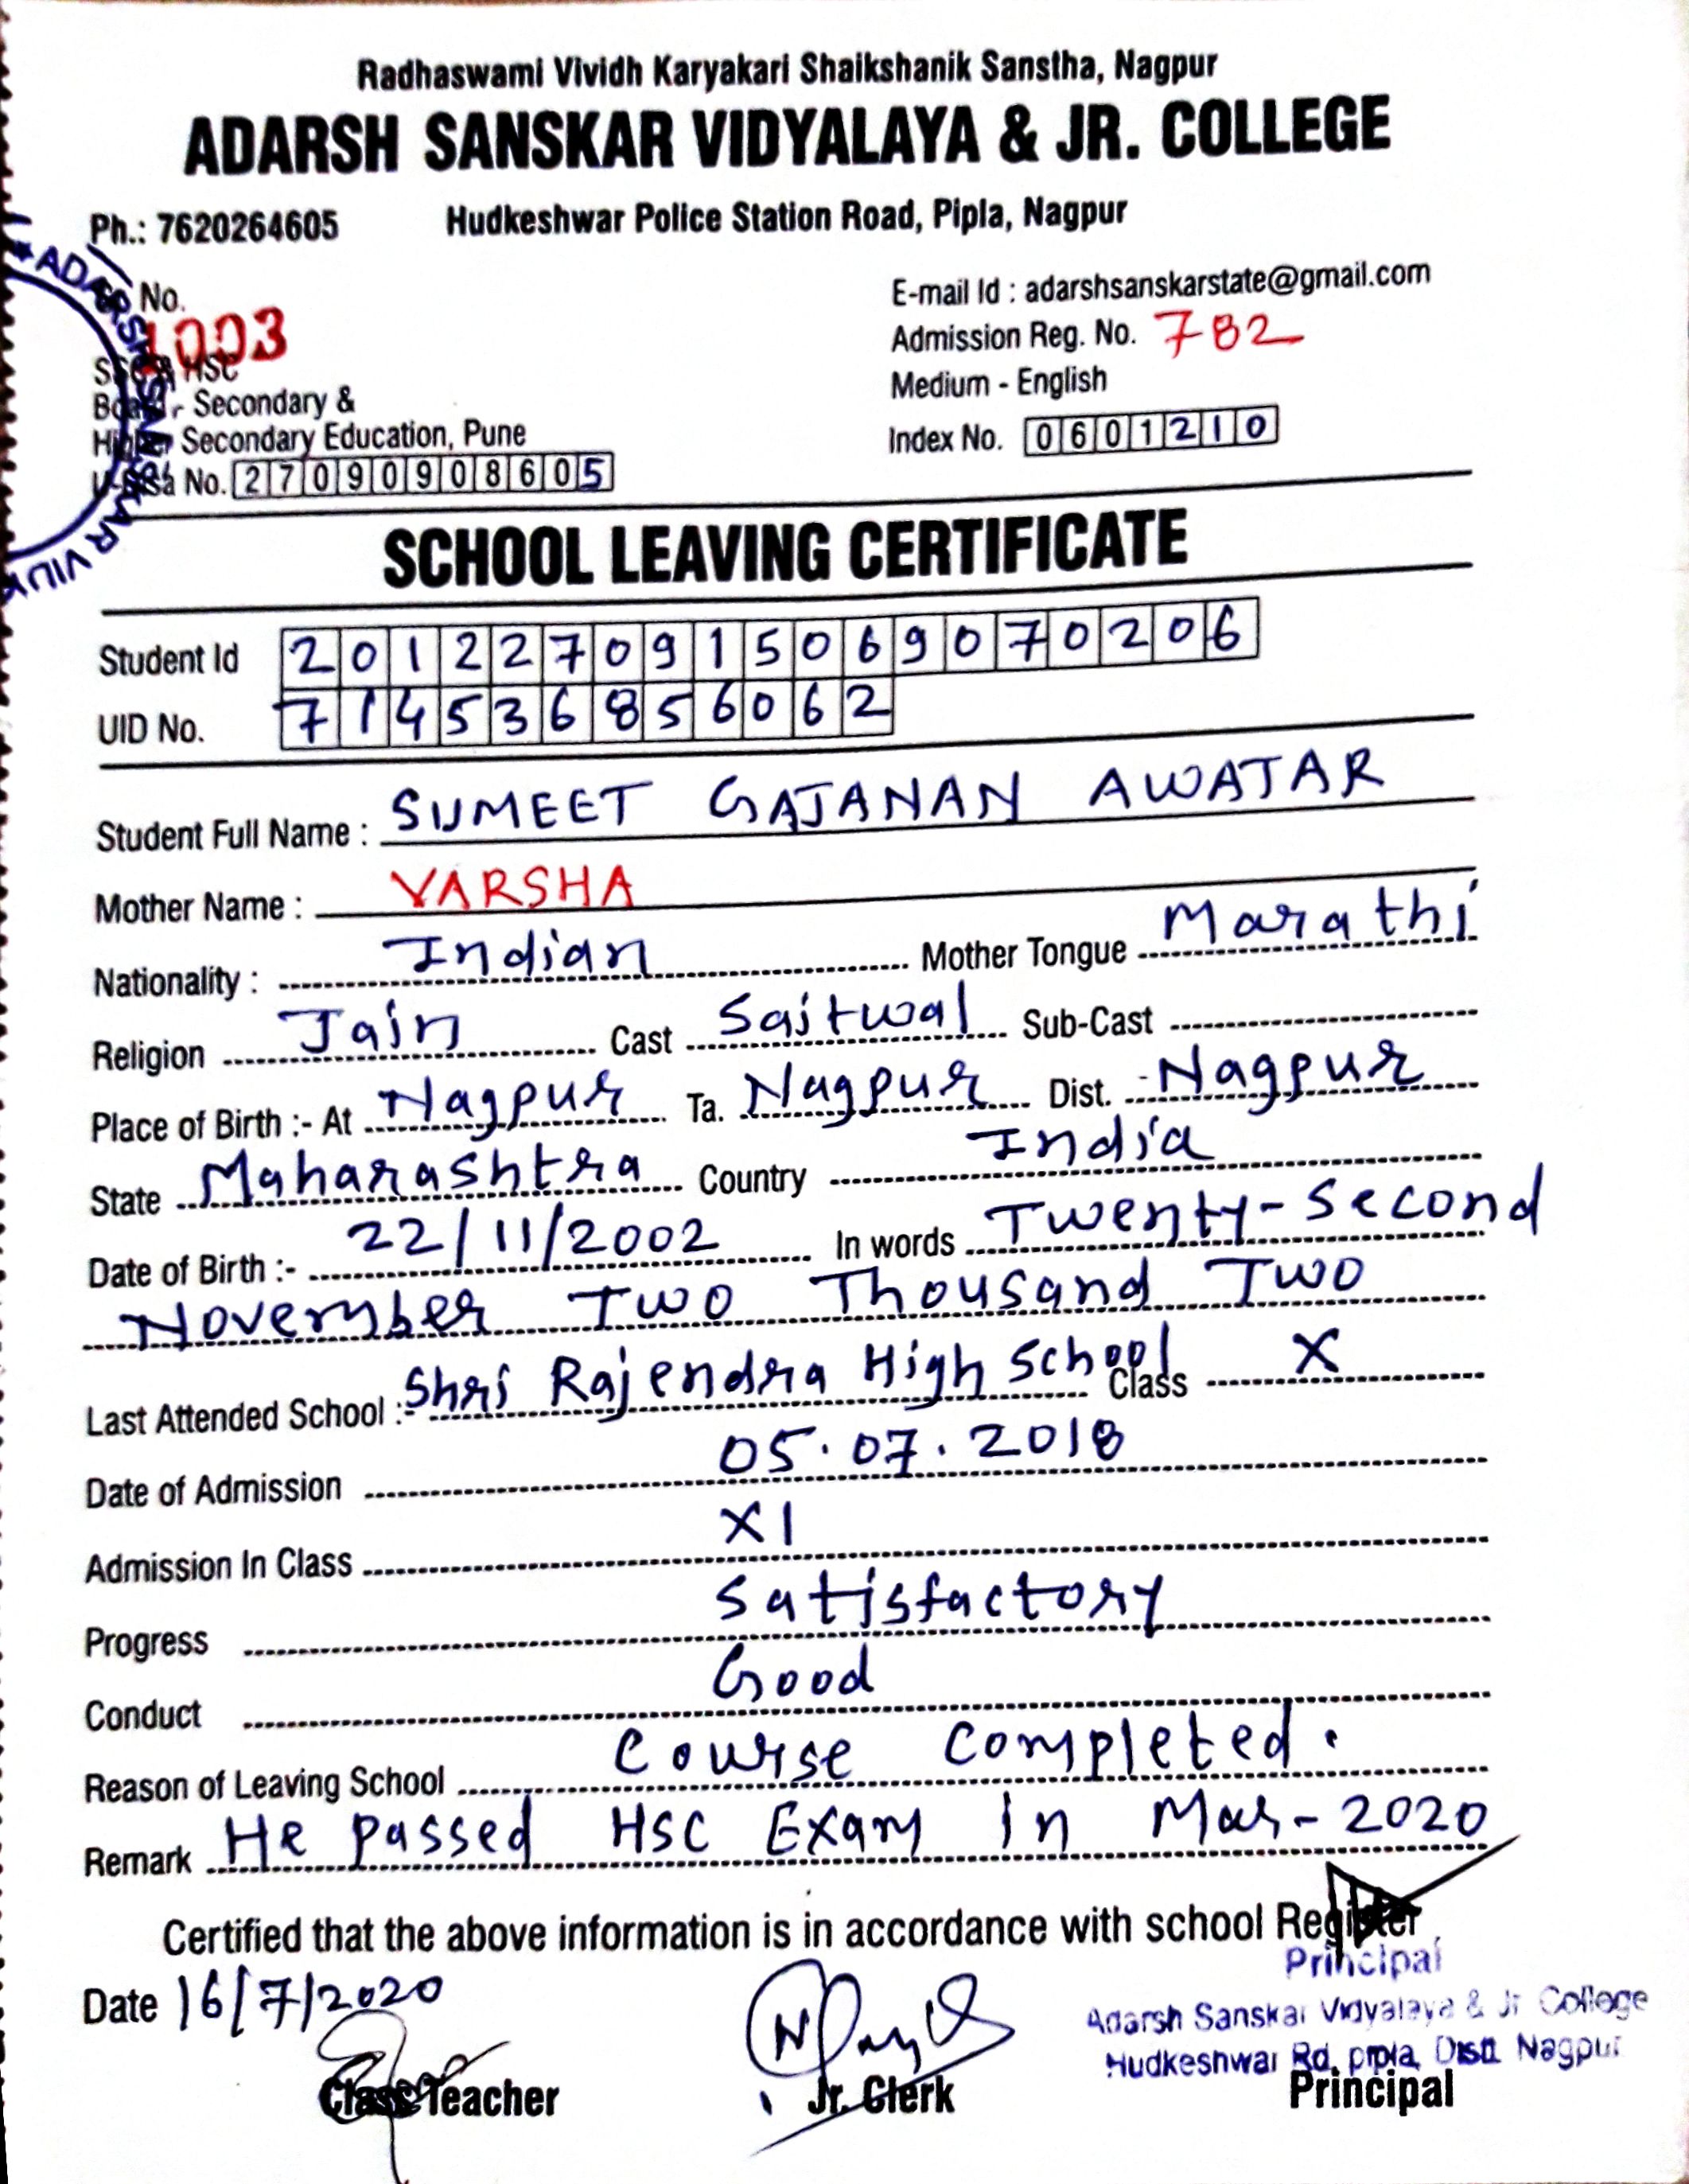 Radhaswami Vividh Karyakari Shaikshanik Sanstha, Nagpur
ADARSH SANSKAR VIDYALAYA & JR. COLLEGE
Ph.: 7620264605 Hudkeshwar Police Station Road, Pipla, Nagpur
No. 1003
E-mail Id : adarshsanskarstate@gmail.com
Admission Reg. No. 782
SSC & HSC
Medium - English
Board - Secondary &
Higher Secondary Education, Pune
Index No. 0601210
U-Disa No. 27090908605
ADARSH SANSKAR VIDY
SCHOOL LEAVING CERTIFICATE
Student Id 2012270915069070206
UID No. 714536856062
Student Full Name : SUMEET GAJANAN AWATAR
Mother Name : VARSHA
Nationality : Indian Mother Tongue Marathi
Religion Jain Cast Saitwal Sub-Cast
Place of Birth :- At Nagpur Ta. Nagpur Dist. Nagpur
State Maharashtra Country India
Date of Birth :- 22/11/2002 In words Twenty-Second
November Two Thousand Two
Last Attended School :- Shri Rajendra High School Class X
Date of Admission 05.07.2018
Admission In Class XI
Progress Satisfactory
Conduct Good
Reason of Leaving School Course Completed.
Remark He passed HSC Exam In Mar-2020
Certified that the above information is in accordance with school Register
Date 16/7/2020
Principal
Adarsh Sanskar Vidyalaya & Jr College
Hudkeshwar Rd, pipla, Distt Nagpur
Class Teacher Jr. Clerk Principal